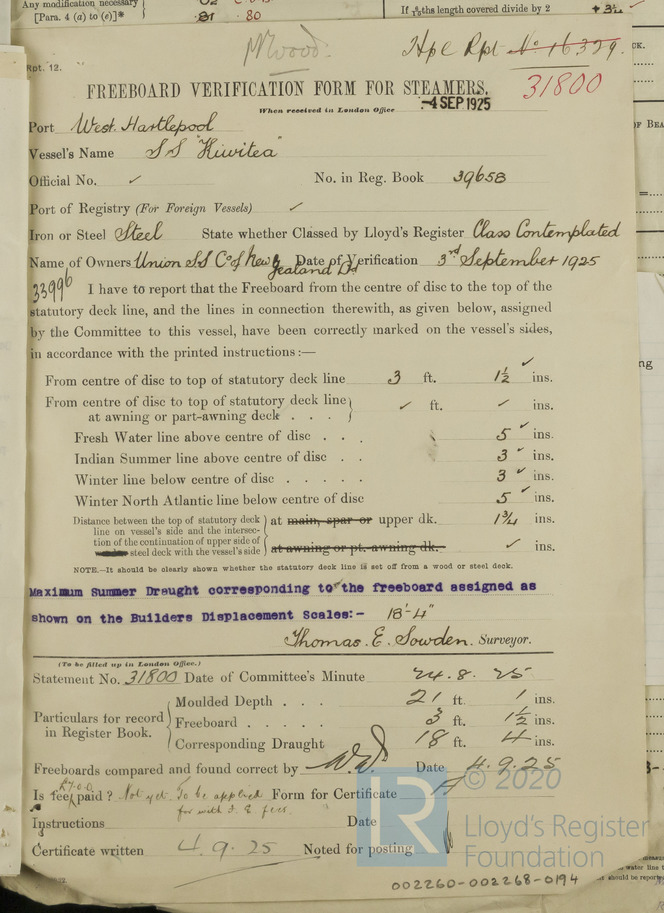 Any modification necessary
[Para. 4 (a) to (e)]*
81 80
If 6/10ths the length covered divide by 2
Hpl Rpt No 16329.
Rpt. 12.
FREEBOARD VERIFICATION FORM FOR STEAMERS.
31800
When received in London Office
-4 SEP 1925
Port West Hartlepool
Vessel's Name SS "Kiwitea"
Official No. ✓ No. in Reg. Book 39658
Port of Registry (For Foreign Vessels) ✓
Iron or Steel Steel State whether Classed by Lloyd's Register Class Contemplated
Name of Owners Union SS Co of New Zealand Ld Date of Verification 3rd September 1925
33996
I have to report that the Freeboard from the centre of disc to the top of the
statutory deck line, and the lines in connection therewith, as given below, assigned
by the Committee to this vessel, have been correctly marked on the vessel's sides,
in accordance with the printed instructions :—
From centre of disc to top of statutory deck line 3 ft. 1½ ✓ ins.
From centre of disc to top of statutory deck line
at awning or part-awning deck . . . ✓ ft. ✓ ins.
Fresh Water line above centre of disc . . . 5 ✓ ins.
Indian Summer line above centre of disc . . 3 ✓ ins.
Winter line below centre of disc . . . . . 3 ✓ ins.
Winter North Atlantic line below centre of disc 5 ✓ ins.
Distance between the top of statutory deck
line on vessel's side and the intersec-
tion of the continuation of upper side of
steel deck with the vessel's side
at main, spar or upper dk. 1¾ ins.
at awning or pt. awning dk. ✓ ins.
NOTE.—It should be clearly shown whether the statutory deck line is set off from a wood or steel deck.
Maximum Summer Draught corresponding to the freeboard assigned as
shown on the Builders Displacement Scales:- 18'-4"
Thomas. E. Sowden. Surveyor.
(To be filled up in London Office.)
Statement No. 31800 Date of Committee's Minute 24.8.25
Particulars for record
in Register Book.
Moulded Depth . . . 21 ft. 1 ins.
Freeboard . . . . . 3 ft. 1½ ins.
Corresponding Draught 18 ft. 4 ins.
Freeboards compared and found correct by Date 4.9.25
£7.0.0
Is fee paid? Not yet. To be applied for with F. E. fees. Form for Certificate
Instructions Date
Certificate written 4.9.25 Noted for posting
LR
© 2020
Lloyd's Register
Foundation
002260-002268-0194